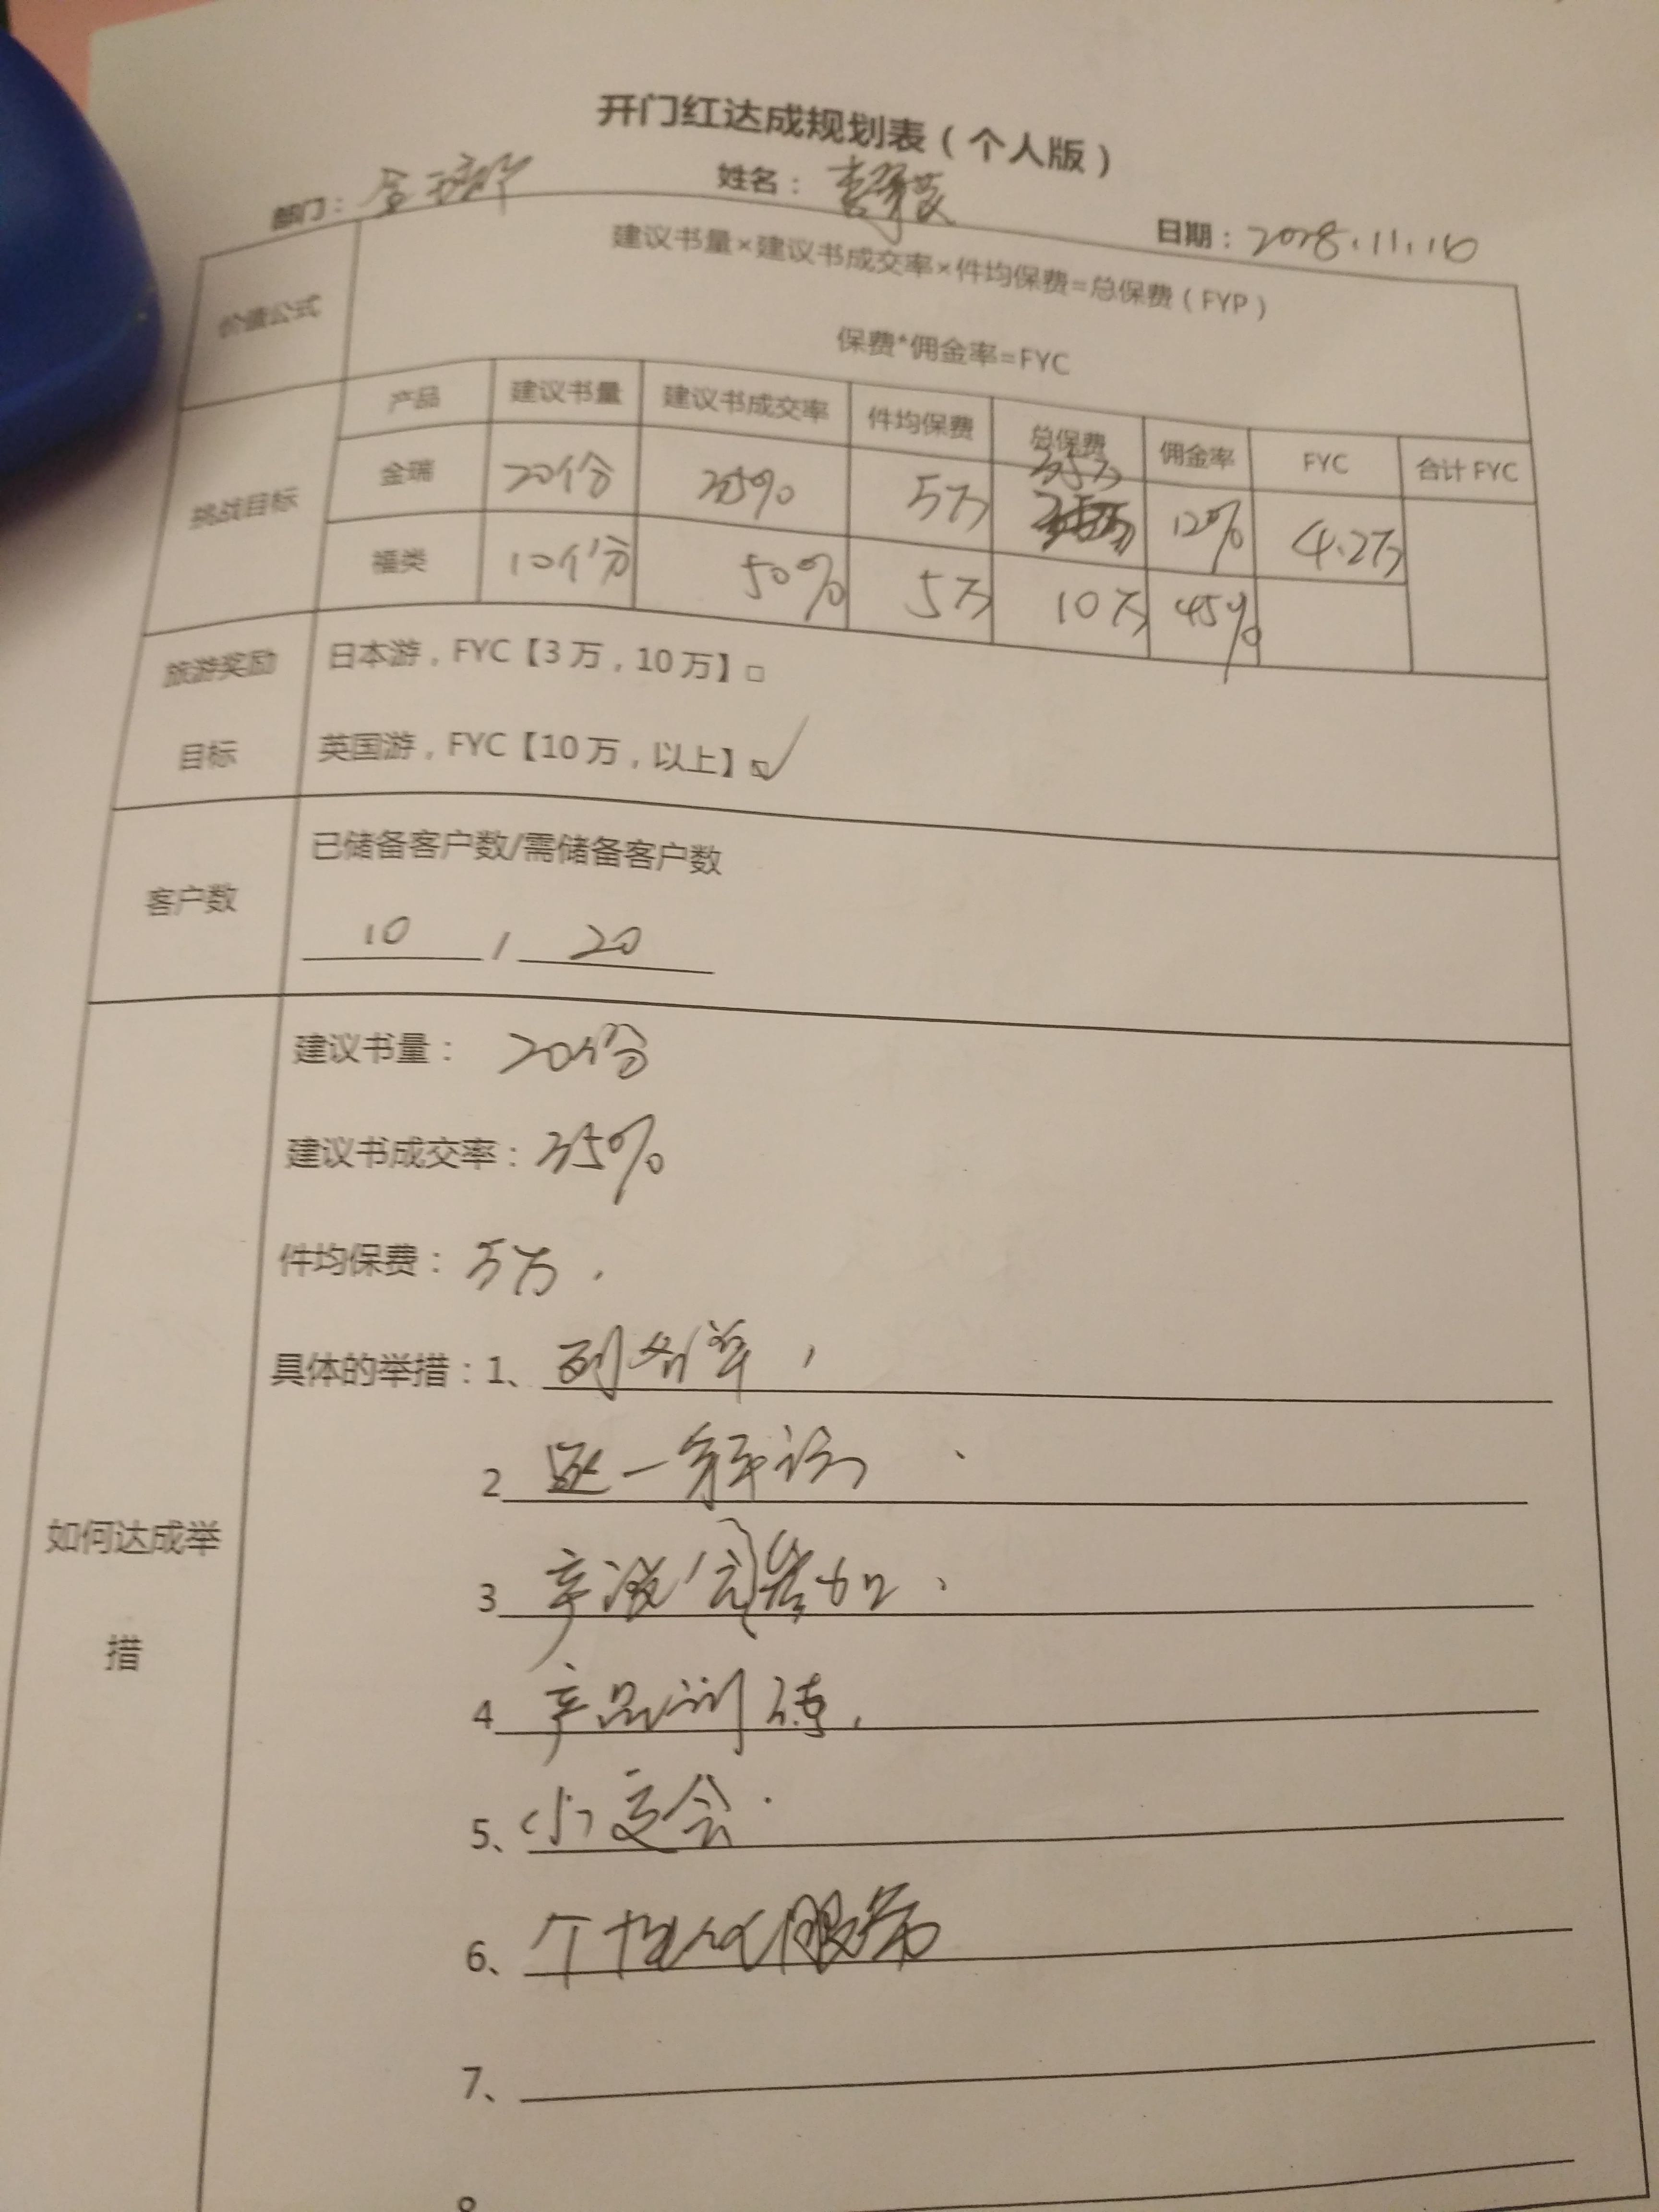 开门红达成规划表（个人版）
部门： 姓名： 日期：2018.11.16
价值公式
建议书量×建议书成交率×件均保费=总保费（FYP）
保费*佣金率=FYC
挑战目标
产品 建议书量 建议书成交率 件均保费 总保费 佣金率 FYC 合计 FYC
金瑞 20份 35% 5万 35万 12% 4.2万
福类 10份 50% 5万 10万 45%
旅游奖励
目标
日本游，FYC【3 万，10 万】□
英国游，FYC【10 万，以上】☑
客户数
已储备客户数/需储备客户数
10 / 20
如何达成举
措
建议书量： 20份
建议书成交率：35%
件均保费：5万.
具体的举措：1、列名单，
2
3
4 产品训练.
5、小交会.
6、个性化服务
7、
8